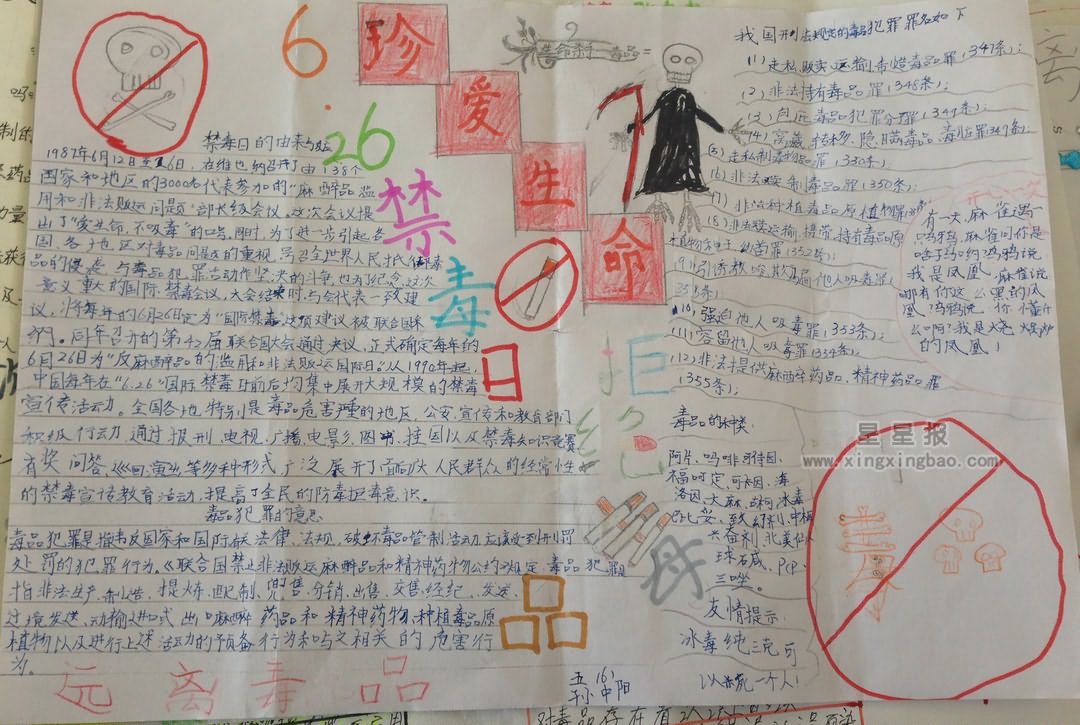 6
.26
珍
爱
生
命
禁
毒
日
拒
绝
毒
品
禁毒日的由来与
1987年6月12日至26日,在维也纳召开了由138个
国家和地区的3000名代表参加的"麻醉品滥
用和非法贩运问题"部长级会议。这次会议提
出了"爱生命,不吸毒"的口号。同时,为了进一步引起各
国、各地区对毒品问题的重视,号召全世界人民
品的侵袭 与毒品犯罪活动作坚决的斗争,也为了纪念这次
意义重大的国际禁毒会议,大会结束时,与会代表一致
议,将每年的6月26日定为"国际禁毒"这项建议被联合国采
纳。同年召开的第42届联合国大会通过决议,正式确定每年的
6月26日为"反麻醉品的滥用和非法贩运国际日"从1990年起,
中国每年在"6.26"国际禁毒日前后均集中展开大规模的禁毒
宣传活动。全国各地,特别是毒品危害严重的地区,公安、宣传和教育部门
积极行动,通过报刊、电视、广播、电影、图书、挂图以及禁毒知识竞赛
有奖问答、巡回演出等多种形式,广泛展开了面向广大人民群众的经常性
的禁毒宣传教育活动,提高了全民的防毒拒毒意识。
毒品犯罪的意思
毒品犯罪是指违反国家和国际有关法律、法规,破坏毒品管制活动,应该受到刑罚
处罚的犯罪行为。《联合国禁止非法贩运麻醉品和精神药物公约》规定,毒品犯罪
指非法生产、制造、提炼、配制、兜售、分销、出售、交售、经纪、发送、
过境发送、动输进出口麻醉药品和精神药物,种植毒品原
植物以及进行上述活动的预备行为和与之相关的危害行
为。
远离毒品
毒品=
我国刑法规定的毒品犯罪罪名如下
(1)走私、贩卖、运输、制造毒品罪(347条);
(2)非法持有毒品罪(348条);
(3)包庇毒品犯罪分子罪(349条);
(4)窝藏、转移、隐瞒毒品、毒赃罪349条;
(5)走私制毒物品罪(330条);
(6)非法买卖制毒品罪(350条);
(7)非法种植毒品原植物罪
(8)非法买卖、运输、携带、持有毒品原
(9)引诱、教唆、欺骗他人吸毒罪
353条;
(10)强迫他人吸毒罪,353条);
(11)容留他人吸毒罪354条);
(12)非法提供麻醉药品、精神药品罪
(355条);
有一天,麻雀遇一
乌鸦,麻雀问你是
啥鸟吗?乌鸦说
我是凤凰,麻雀说
哪有你这么黑的凤
凰,乌鸦说,你懂什
么啊?我是火
的凤凰!
毒品的种类
阿片、吗啡、可待因、
福可定、可卡因、海
洛因、大麻、古柯、冰毒
巴比妥、致幻剂、中枢
兴奋剂、北美仙人
球石碱、PCP、
三唑。
友情提示:
冰毒纯三克可
以杀死一个人!
毒
五(6)
孙中阳
星星报
www.xingxingbao.com